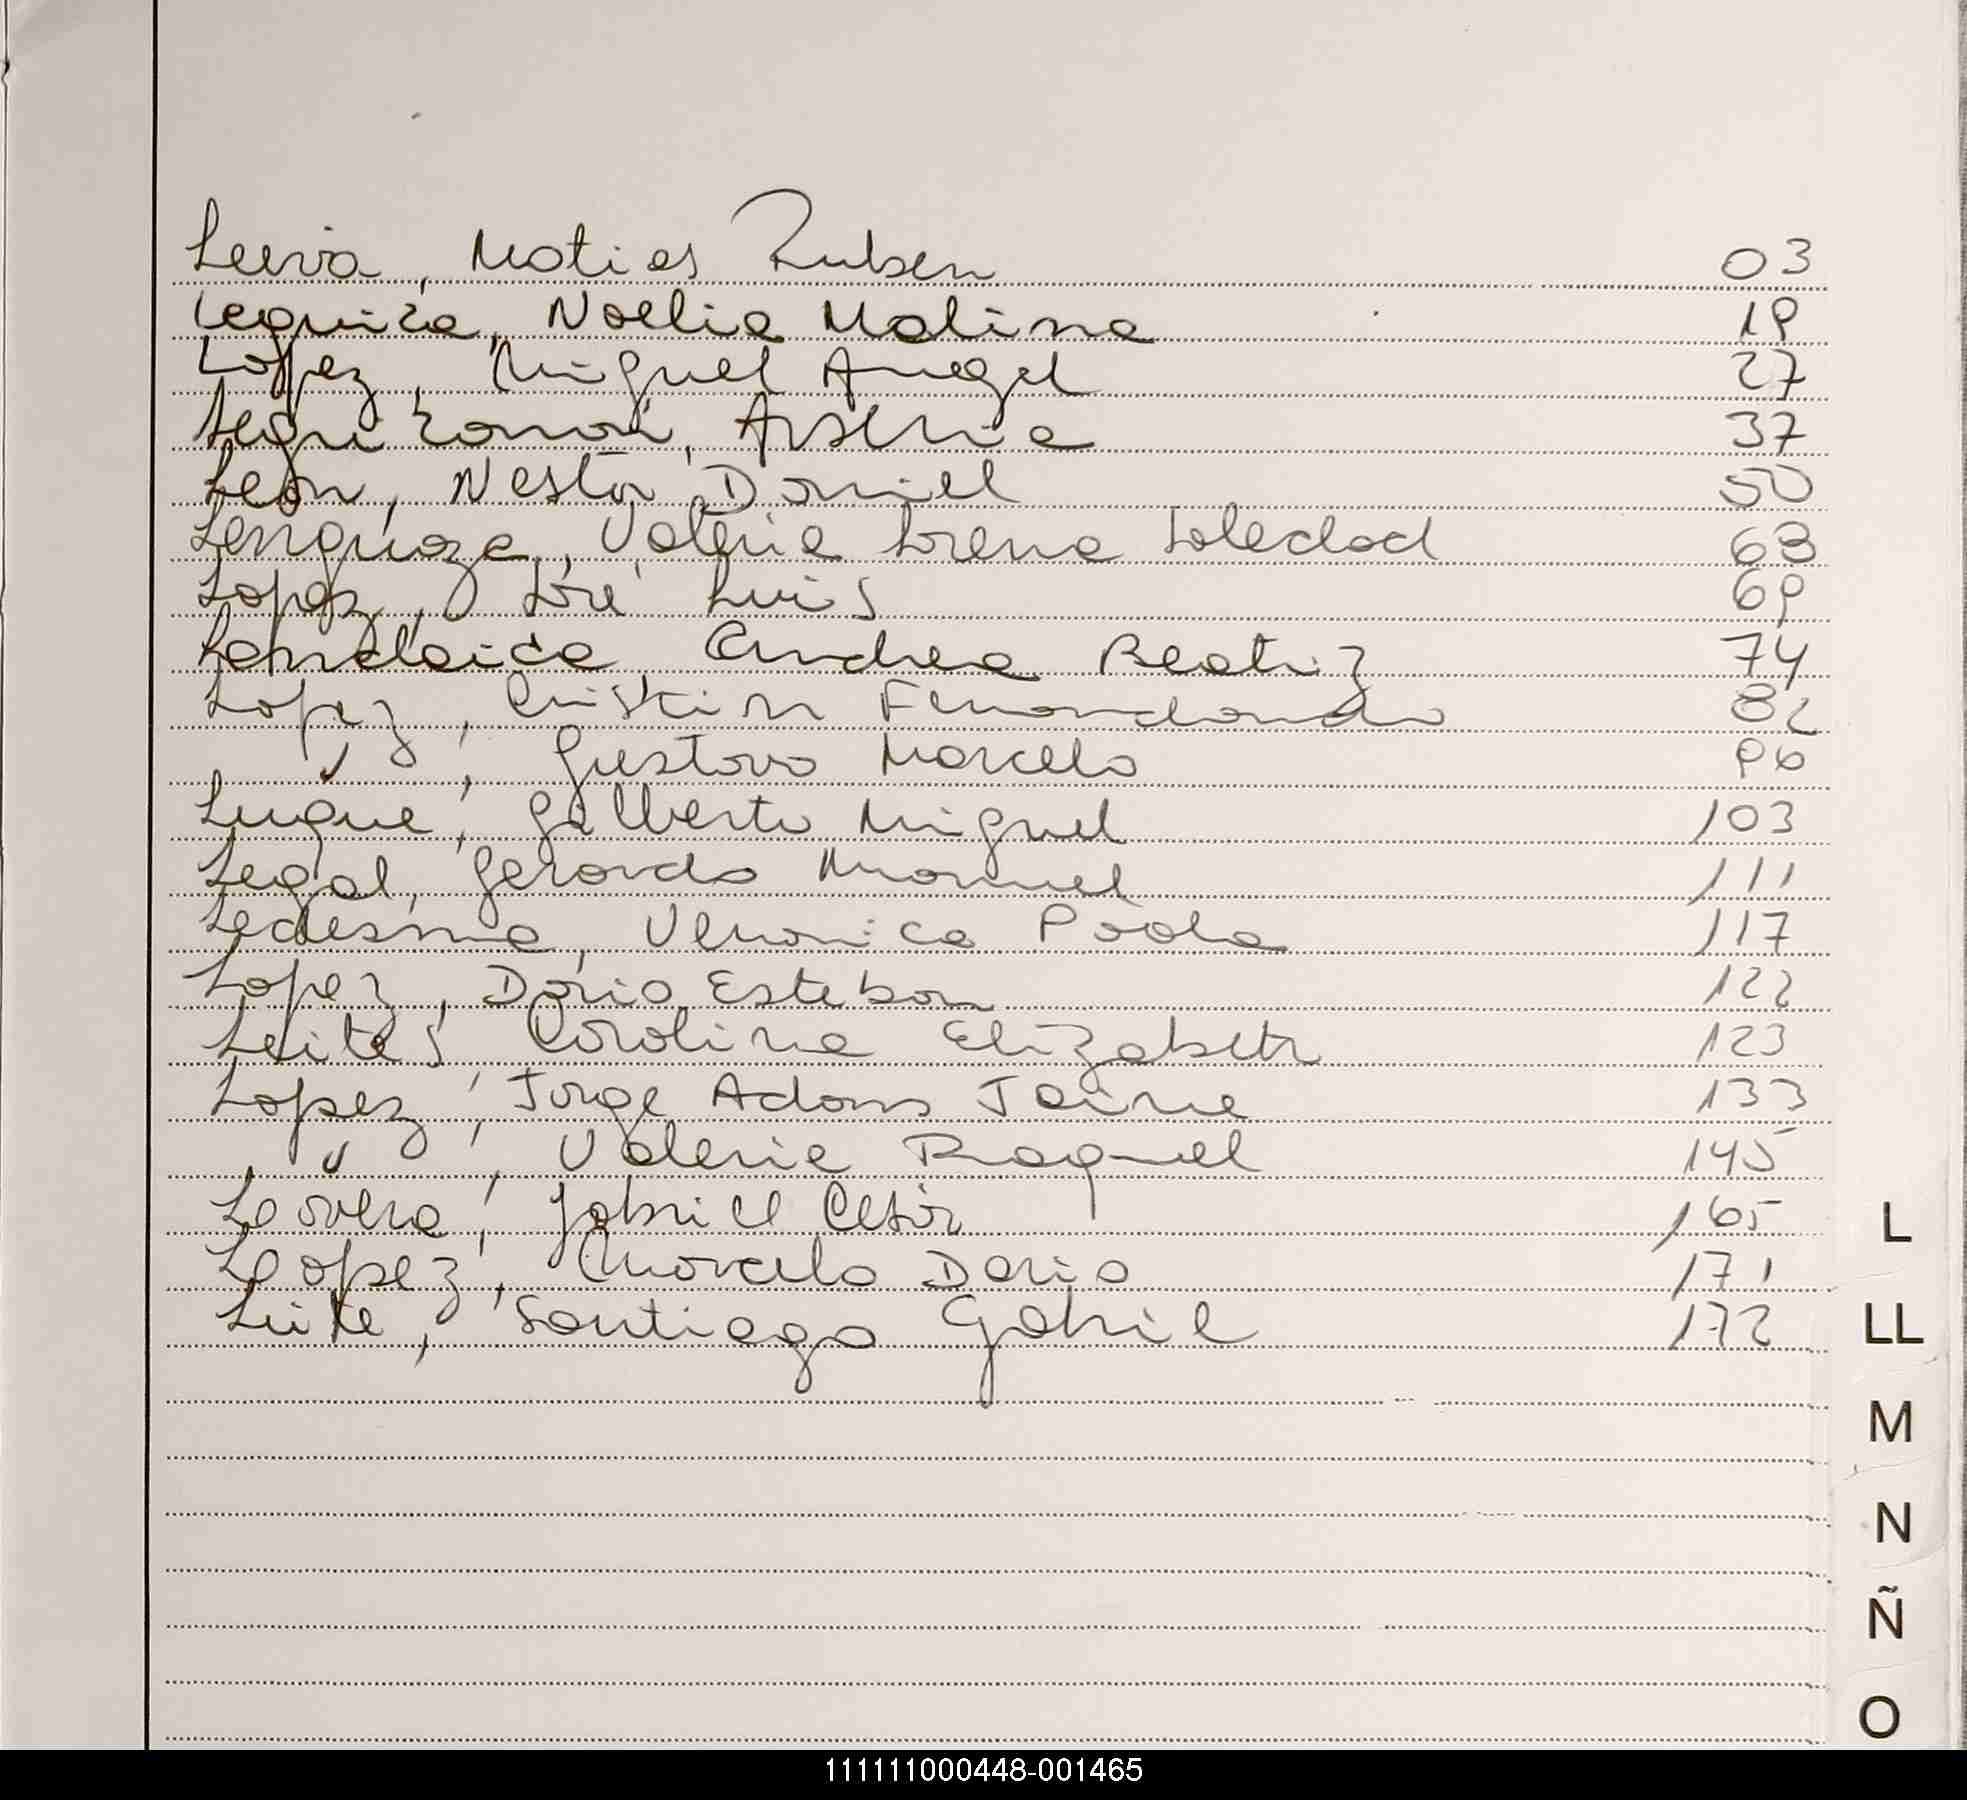 Leiva, Matias Ruben 03
Leguiza, Noelia Malina 19
Lopez, Miguel Angel 27
Leguizamon, Arsenia 37
Leon, Nestor Daniel 50
Lenguaza, Valeria Lorena Soledad 63
Lopez, José Luis 69
Landaida Andrea Beatriz 74
Lopez, Cristian Fernando 82
" , Gustavo Marcelo 96
Luque, Gilberto Miguel 103
Legal, Gerardo Manuel 111
Ledesma, Veronica Paola 117
Lopez, Dario Esteban 122
Leites Carolina Elizabeth 123
Lopez, Jorge Adans Jaime 133
" , Valeria Raquel 145
Lovera, Gabriel Cesar 165
Lopez, Marcelo Dario 171
Leite, Santiago Gabriel 172
L
LL
M
N
Ñ
O
111111000448-001465